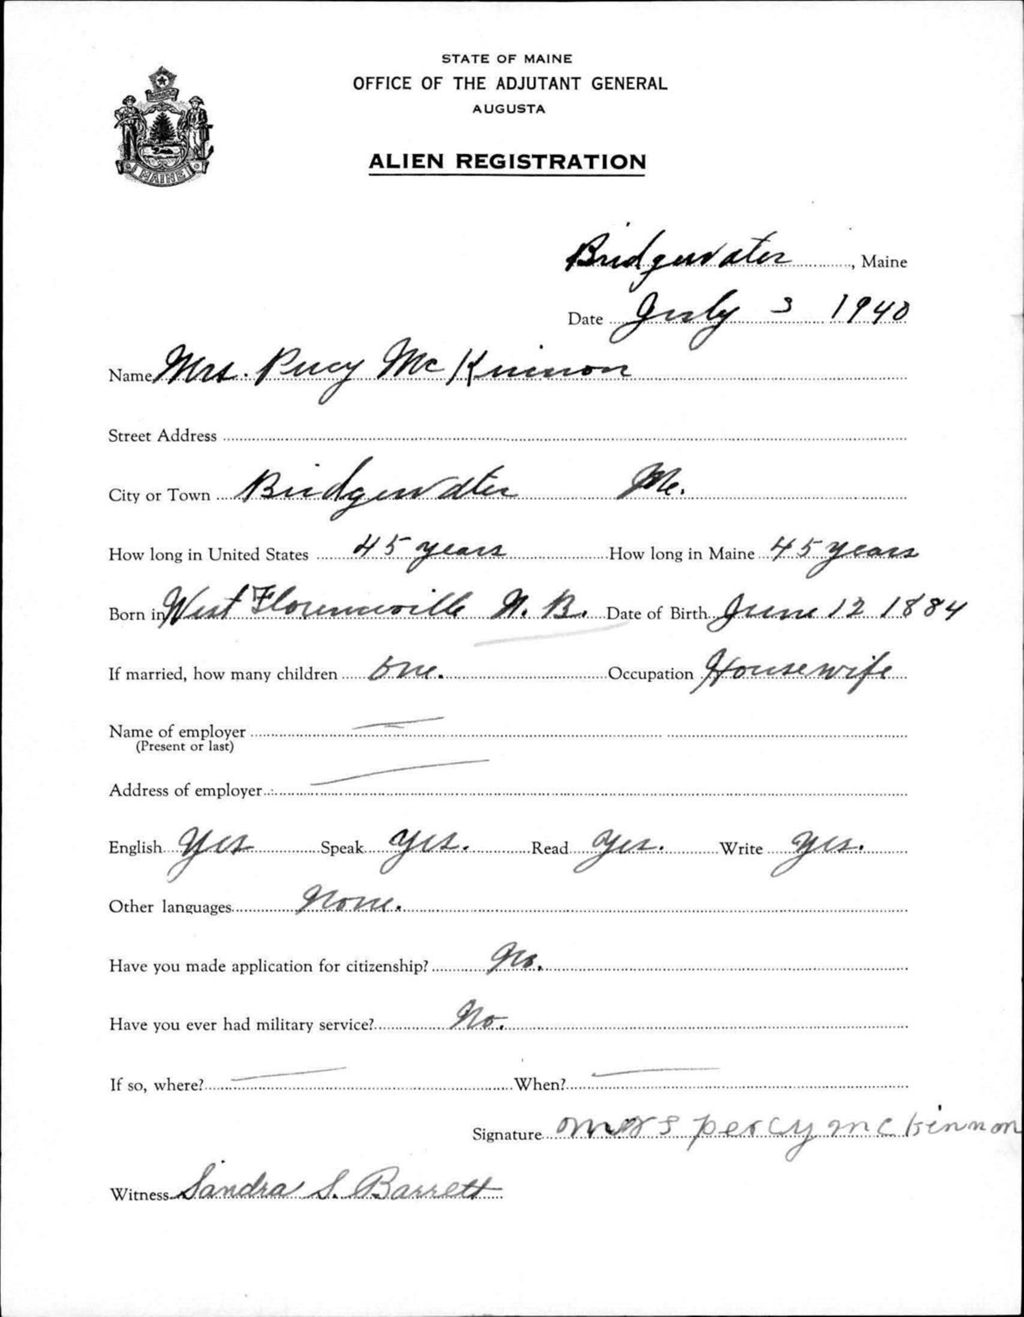 STATE OF MAINE
OFFICE OF THE ADJUTANT GENERAL
AUGUSTA
ALIEN REGISTRATION
MAINE
Bridgewater, Maine
Date July 3 1940
Name Mrs. Percy McKinnon
Street Address
City or Town Bridgewater Me.
How long in United States 45 years How long in Maine 45 years
Born in West Florenceville N. B. Date of Birth June 12 1884
If married, how many children one. Occupation Housewife
Name of employer
(Present or last)
Address of employer
English Yes Speak Yes. Read Yes. Write Yes.
Other languages None.
Have you made application for citizenship? No.
Have you ever had military service? No.
If so, where? When?
Signature mrs percy mckinnon
Witness Sandra S. Barrett